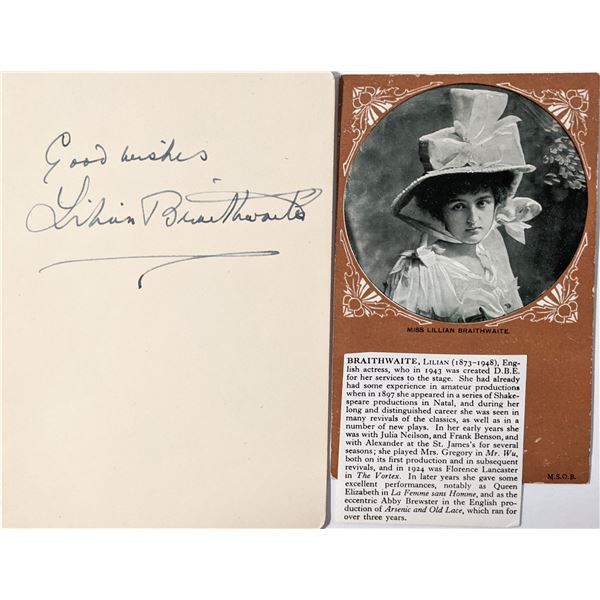 Good wishes
Lilian Braithwaite
MISS LILLIAN BRAITHWAITE.
BRAITHWAITE, LILIAN (1873–1948), Eng-
lish actress, who in 1943 was created D.B.E.
for her services to the stage. She had already
had some experience in amateur productions
when in 1897 she appeared in a series of Shake-
speare productions in Natal, and during her
long and distinguished career she was seen in
many revivals of the classics, as well as in a
number of new plays. In her early years she
was with Julia Neilson, and Frank Benson, and
with Alexander at the St. James's for several
seasons; she played Mrs. Gregory in Mr. Wu,
both on its first production and in subsequent
revivals, and in 1924 was Florence Lancaster
in The Vortex. In later years she gave some
excellent performances, notably as Queen
Elizabeth in La Femme sans Homme, and as the
eccentric Abby Brewster in the English pro-
duction of Arsenic and Old Lace, which ran for
over three years.
M.S.O.B.